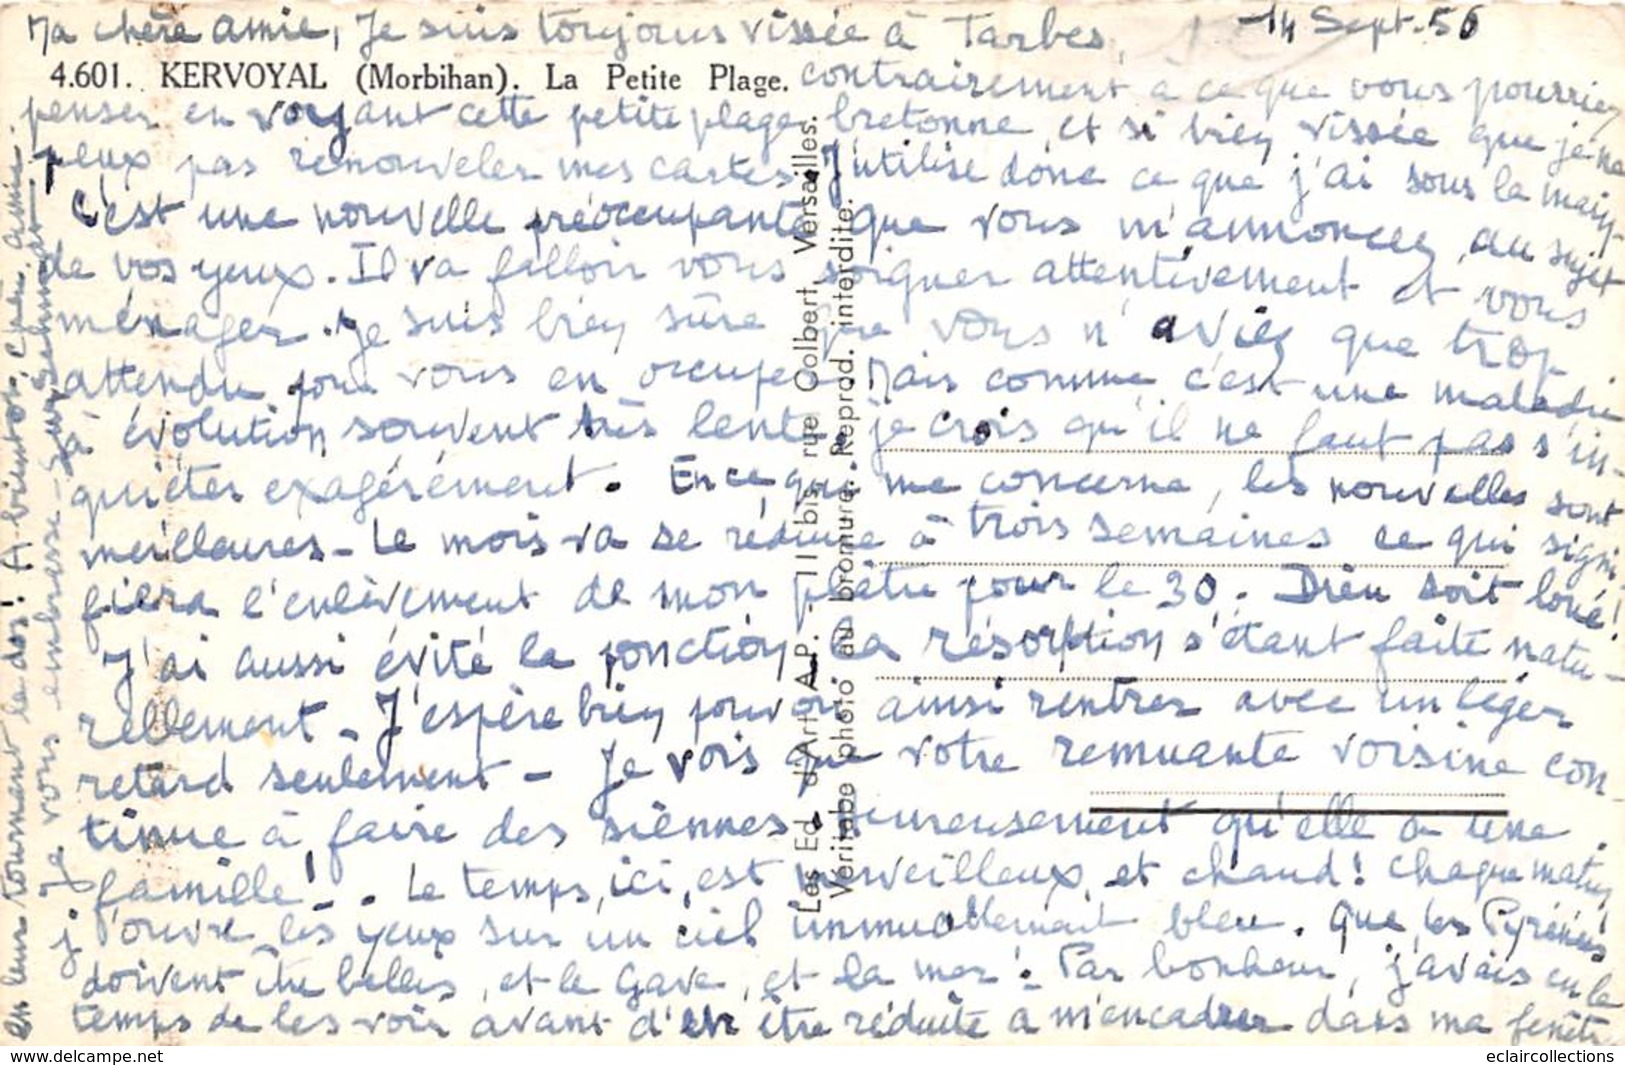 14 Sept. 56
Ma chère amie, Je suis toujours vissée à Tarbes,
4.601. KERVOYAL (Morbihan). La Petite Plage.
contrairement à ce que vous pourriez
penser en voyant cette petite plage bretonne, et si bien vissée que je ne
peux pas renouveler mes cartes. J'utilise donc ce que j'ai sous la main.
C'est une nouvelle préoccupante que vous m'annoncez, au sujet
de vos yeux. Il va falloir vous soigner attentivement et vous
ménager. Je suis bien sûre que vous n'aviez que trop
attendu pour vous en occuper. Mais comme c'est une maladie
à évolution souvent très lente, je crois qu'il ne faut pas s'in-
quiéter exagérément. En ce qui me concerne, les nouvelles sont
meilleures - Le mois va se réduire à trois semaines ce qui signi-
fiera l'enlèvement de mon plâtre pour le 30. Dieu soit loué!
J'ai aussi évité la ponction, la résorption s'étant faite natu-
rellement - J'espère bien pouvoir ainsi rentrer avec un léger
retard seulement - Je vois que votre remuante voisine con-
tinue à faire des siennes. Heureusement qu'elle a une
famille! - . Le temps, ici, est merveilleux, et chaud! Chaque matin
j'ouvre les yeux sur un ciel immuablement bleu. Que les Pyrénées
doivent être belles, et le Gave, et la mer! Par bonheur, j'avais eu le
temps de les voir avant d'en être réduite à m'encadrer dans ma fenêtre
en leur tournant le dos! A bientôt, chère amie.
Je vous embrasse -
Les Ed. d'Art A. P. - 11 bis, rue Colbert, Versailles.
Véritable photo au bromure. Reprod. interdite.
www.delcampe.net
eclaircollections